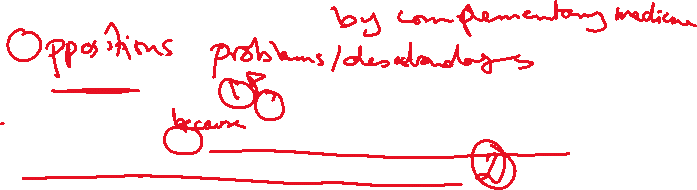 by complementary medicine
Oppositions problems/disadvantages
because